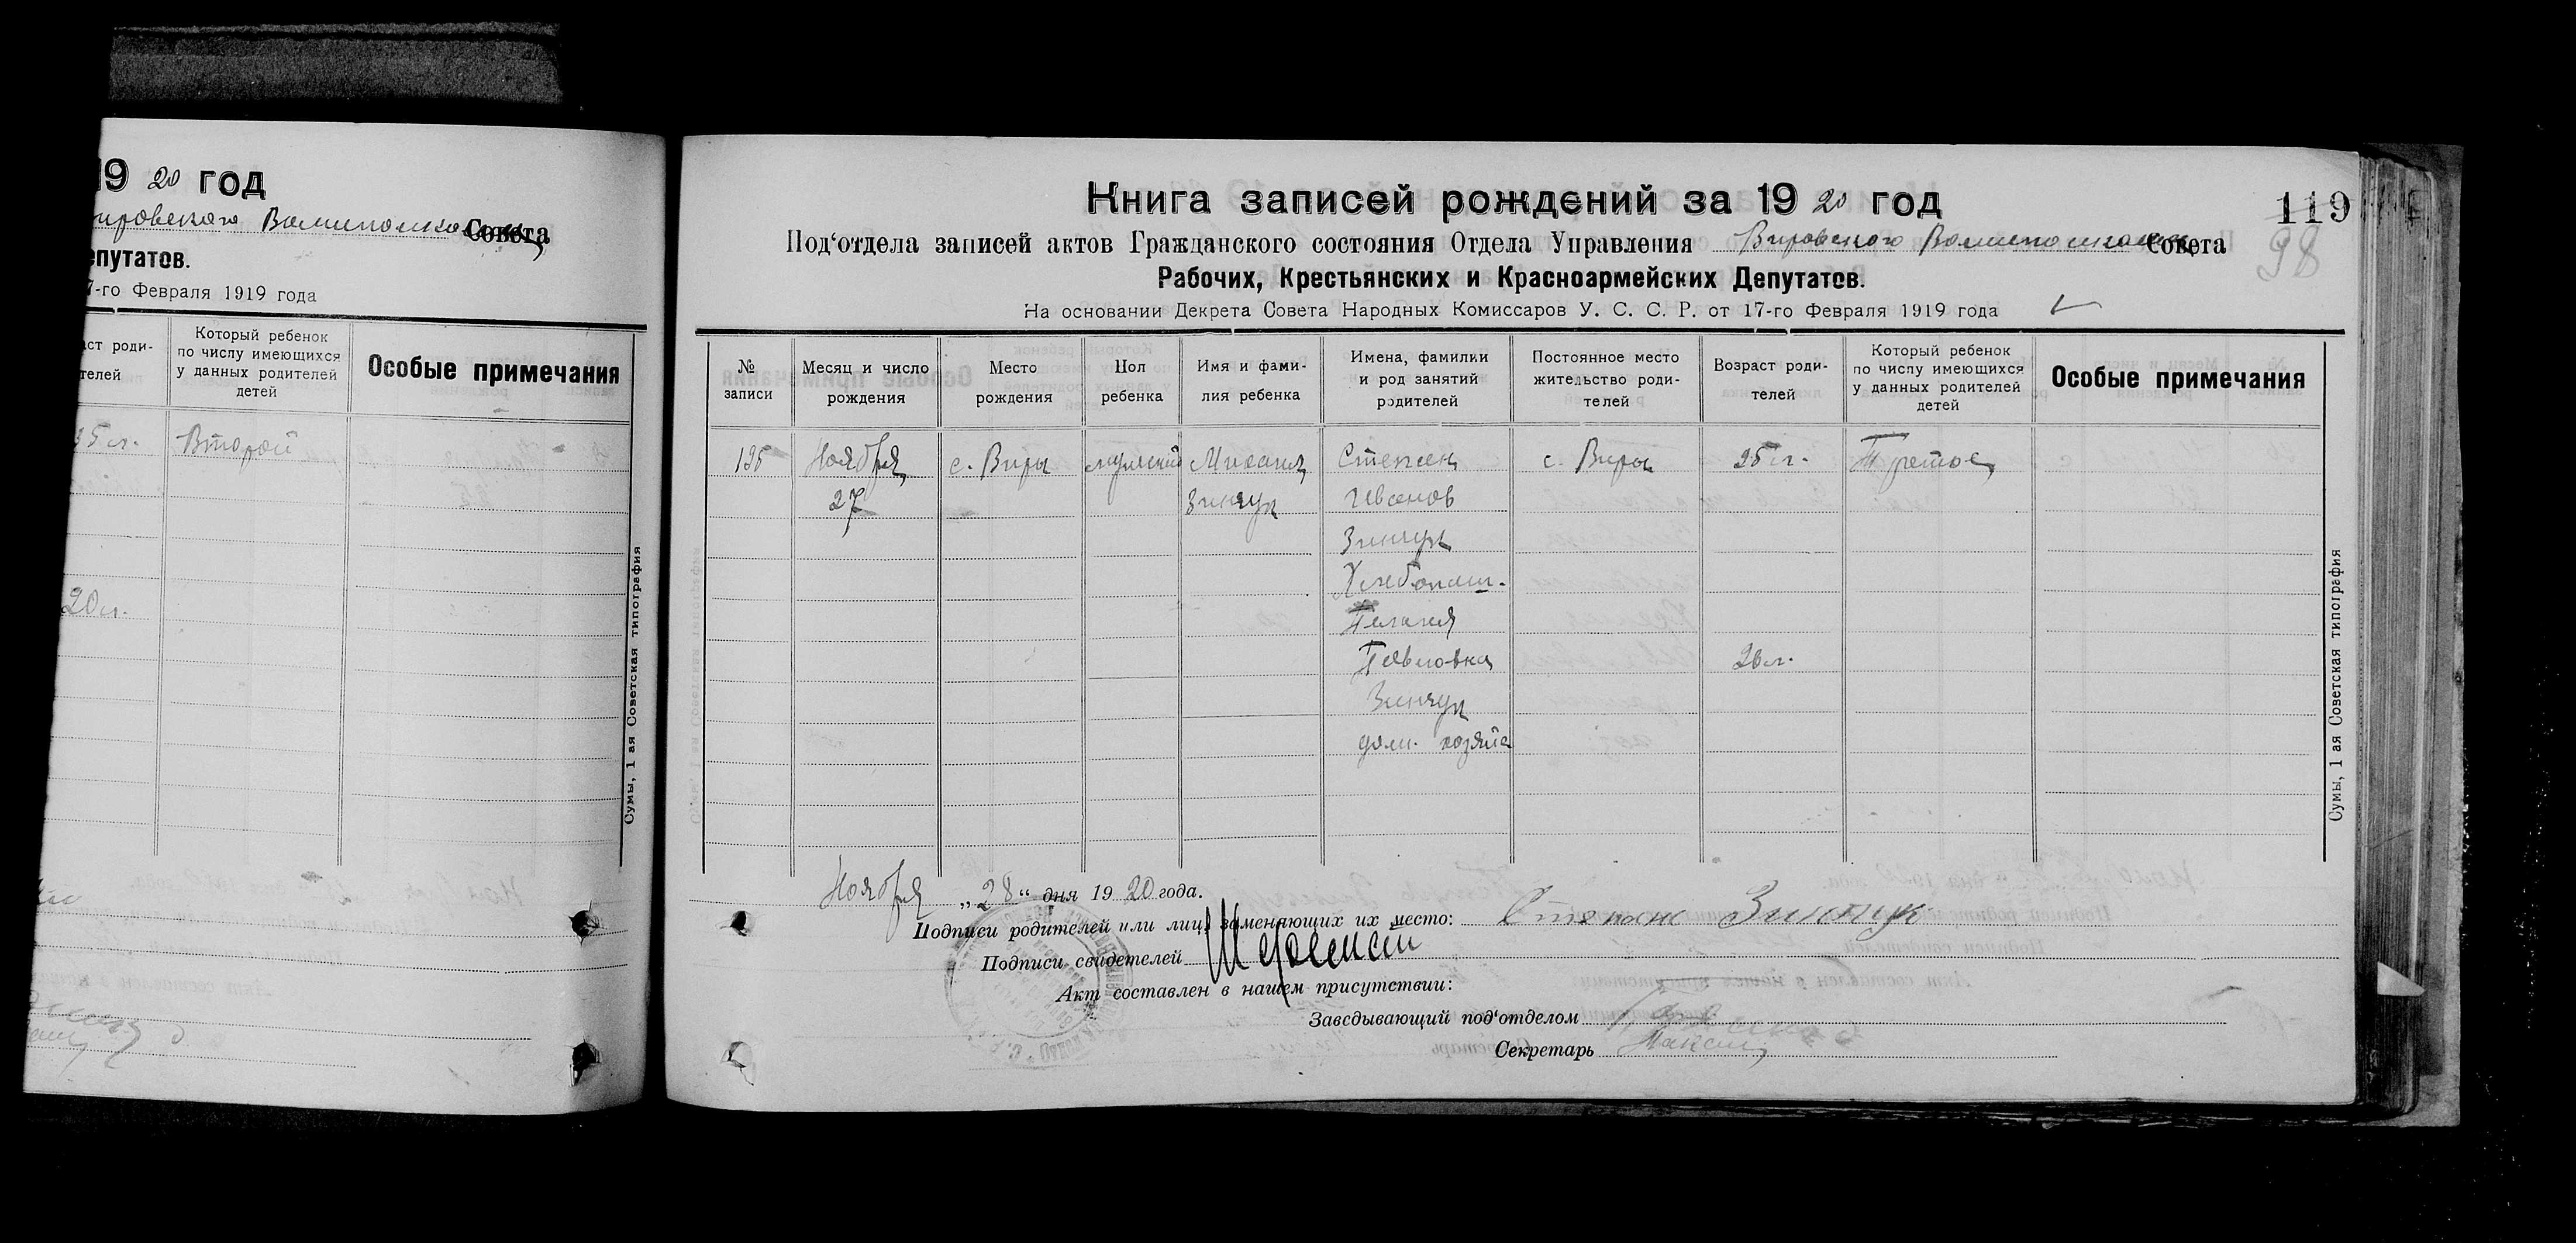 19 20 год
Совета
епутатов.
7-го Февраля 1919 года
аст роди-
телей
Который ребенок
по числу имеющихся
у данных родителей
детей
Особые примечания
Второй
20 л.
Сумы, 1 ая Советская типография
Книга записей рождений за 19 20 год
119
98
Под‘отдела записей актов Гражданского состояния Отдела Управления Вировского Волисполкома Совета
Рабочих, Крестьянских и Красноармейских Депутатов.
На основании Декрета Совета Народных Комиссаров У. С. С. Р. от 17-го Февраля 1919 года
№
записи
Месяц и число
рождения
Место
рождения
Пол
ребенка
Имя и фами-
лия ребенка
Имена, фамилки
и род занятий
родителей
Постоянное место
жительство роди-
телей
Возраст роди-
телей
Который ребенок
по числу имеющихся
у данных родителей
детей
Особые примечания
Ноября с. Виры мужской Михаил Степан с. Виры 25 л. Третий
27 Зинчук Иванов
Зинчук
Хлебопаш.
Пелагия
Павловна
Зинчук
дом. хозяйс
Ноября „28“ дня 19 20 года.
Подписи родителей или лиц, заменяющих их место: Степан Зинчук
Подписи свидетелей
Акт составлен в нашем присутствии:
Заведывающий под‘отделом
Секретарь
Сумы, 1 ая Советская типография